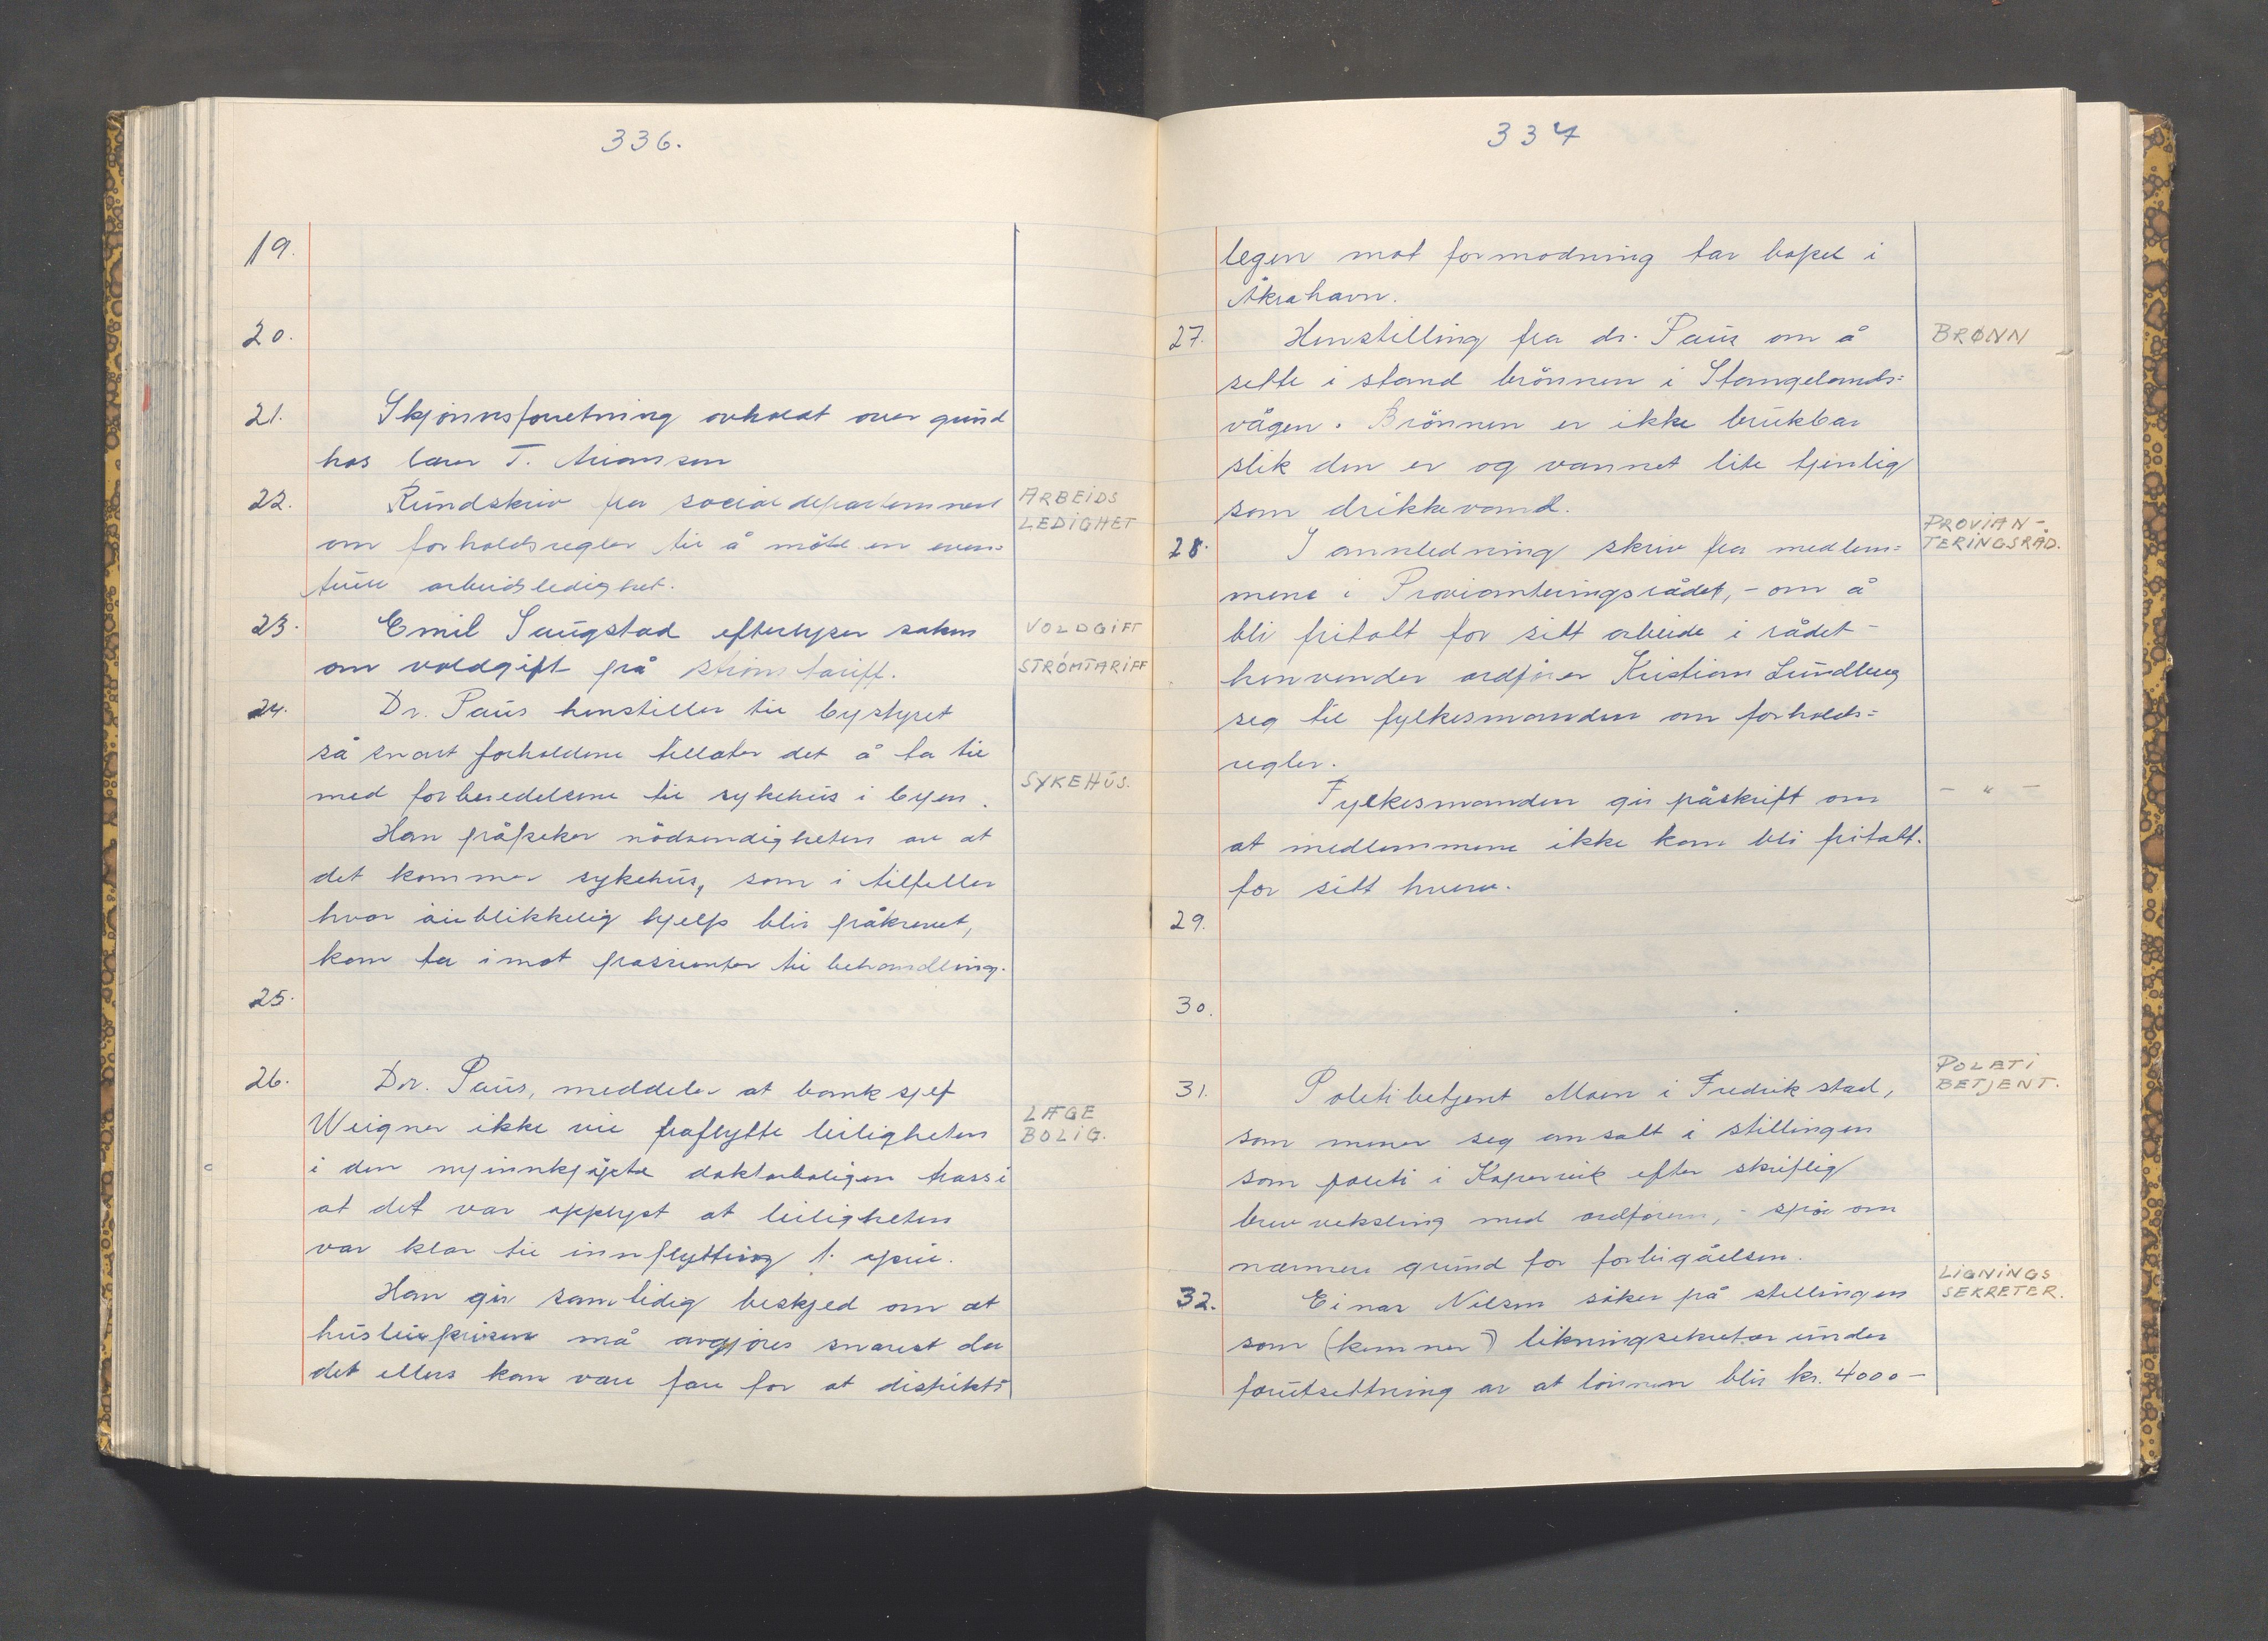 336.
19.
20.
21. Skjönnsforretning avholdt over grund
hos lærer T. Arianson
22. Rundskriv fra socialdepartementet
om forholdsregler til å möte en even=
tuell arbeidsledighet.
ARBEIDS
LEDIGHET
23. Emil Saugstad efterlyser saken
om voldgift på strömtariff.
VOLDGIFT
STRÖMTARIFF
24. Dr. Paus henstiller til bystyret
så snart forholdene tillater det å ta til
med forberedelsene til sykehus i byen.
SYKEHUS.
Han påpeker nödvendigheten av at
det kommer sykehus, som i tilfeller
hvor öieblikkelig hjelp blir påkrevet,
kan ta imot passienter til behandling.
25.
26. Dr. Paus, meddeler at banksjef
Weigner ikke vil fraflytte leiligheten
LÆGE
BOLIG.
i den nyinnkjöpte doktorboligen trass i
at det var opplyst at leiligheten
var klar til innflytting 1. april.
Han gir samtidig beskjed om at
husleieprisen må avgjöres snarest da
det ellers kan være fare for at distrikts
337
legen mot formodning tar bopel i
Åkrahavn.
27. Henstilling fra dr. Paus om å
BRØNN
sette i stand brönnen i Stangelands=
vågen. Brönnen er ikke brukbar
slik den er og vannet lite tjenlig
som drikkevand.
28. I annledning skriv fra medlem=
PROVIAN-
TERINGSRÅD.
mene i Provianteringsrådet, - om å
bli fritatt for sitt arbeide i rådet -
henvender ordförer Kristian Lundberg
seg til fylkesmanden om forholds=
regler.
Fylkesmanden gir påskrift om
- " -
at medlemmene ikke kan bli fritatt.
for sitt hverv.
29.
30.
31. Politibetjent Moen i Fredrikstad,
POLETI
BETJENT.
som mener seg ansatt i stillingen
som politi i Kopervik efter skriftlig
brevveksling med ordföreren, - spör om
nærmere grund for forbigåelsen.
32. Einar Nilsen söker på stillingen
LIGNINGS
SEKRETER.
som (kemner) likningsekretær under
forutsettning av at lönnen blir kr. 4000 -